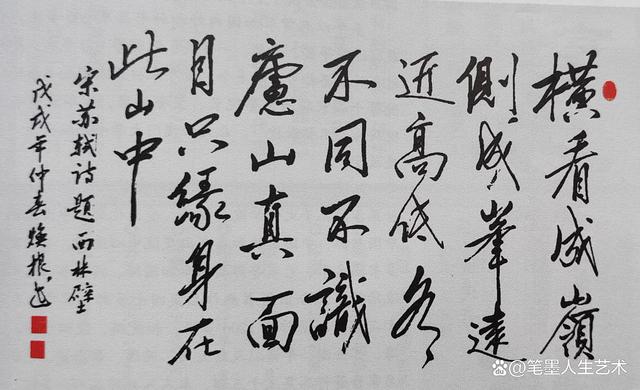 橫看成嶺
側成峯遠
近高低各
不同不識
廬山真面
目只緣身在
此山中
宋苏軾詩題西林壁
戊戌年仲春焕根
@笔墨人生艺术